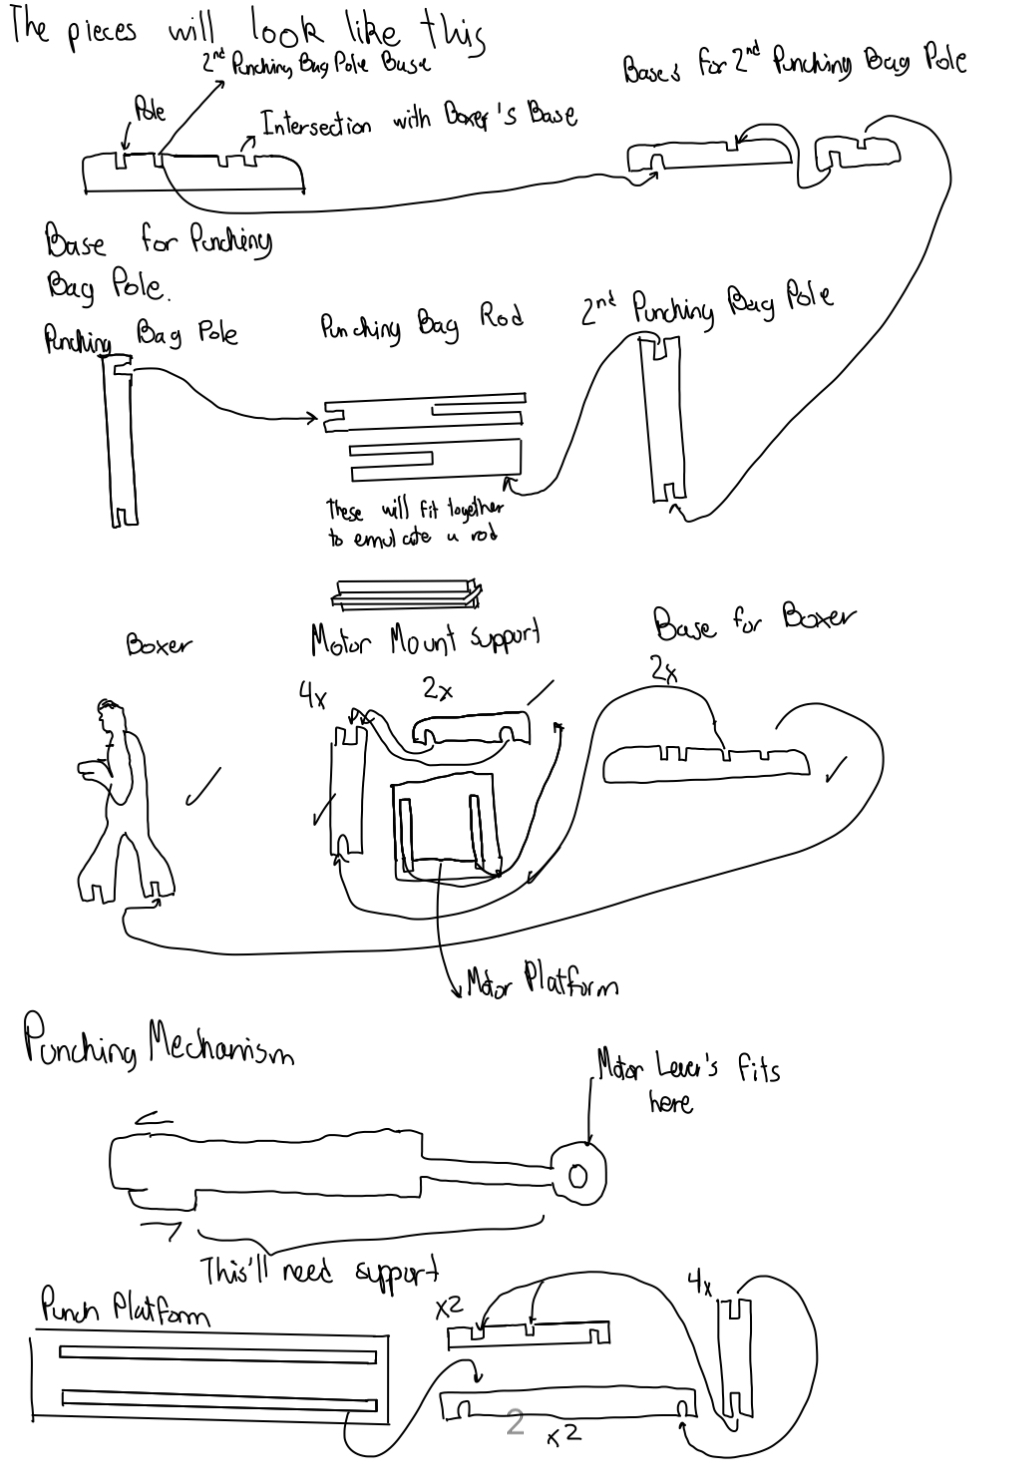 The pieces will look like this
2nd Punching Bag Pole Base
Bases for 2nd Punching Bag Pole
Pole
Intersection with Boxer's Base
Base for Punching
Bag Pole.
Punching Bag Pole
Punching Bag Rod
2nd Punching Bag Pole
These will fit together
to emulate a rod
Boxer
Motor Mount Support
Base for Boxer
4x
2x
2x
Motor Platform
Punching Mechanism
Motor Lever's fits
here
This'll need support
Punch Platform
x2
4x
x2
2